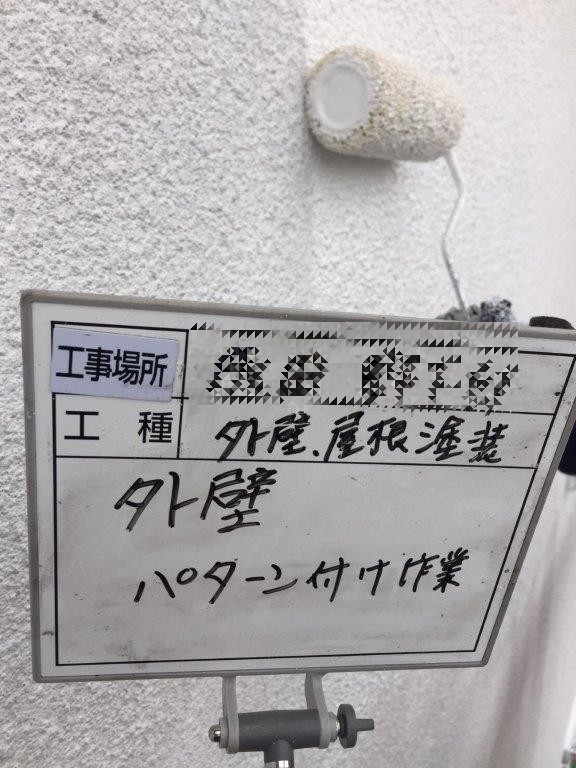 工事場所
工種 外壁、屋根塗装
外壁
パターン付け作業